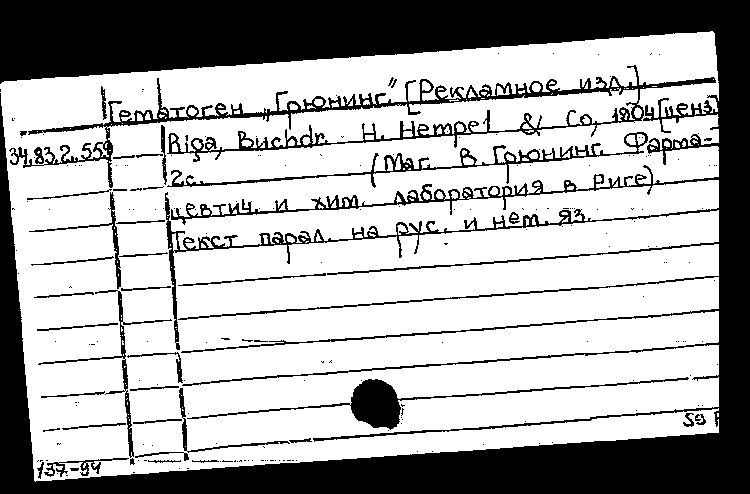 Гематоген „Грюнинг." [Рекламное изд.].
34.83.2.559 Riga, Buchdr. H. Hempel & Co, 1904 [ценз.]
2 с. (Маг. В. Грюнинг. Фарма=
цевтич. и хим. лаборатория в Риге).
Текст парал. на рус. и нем. яз.
137.-94